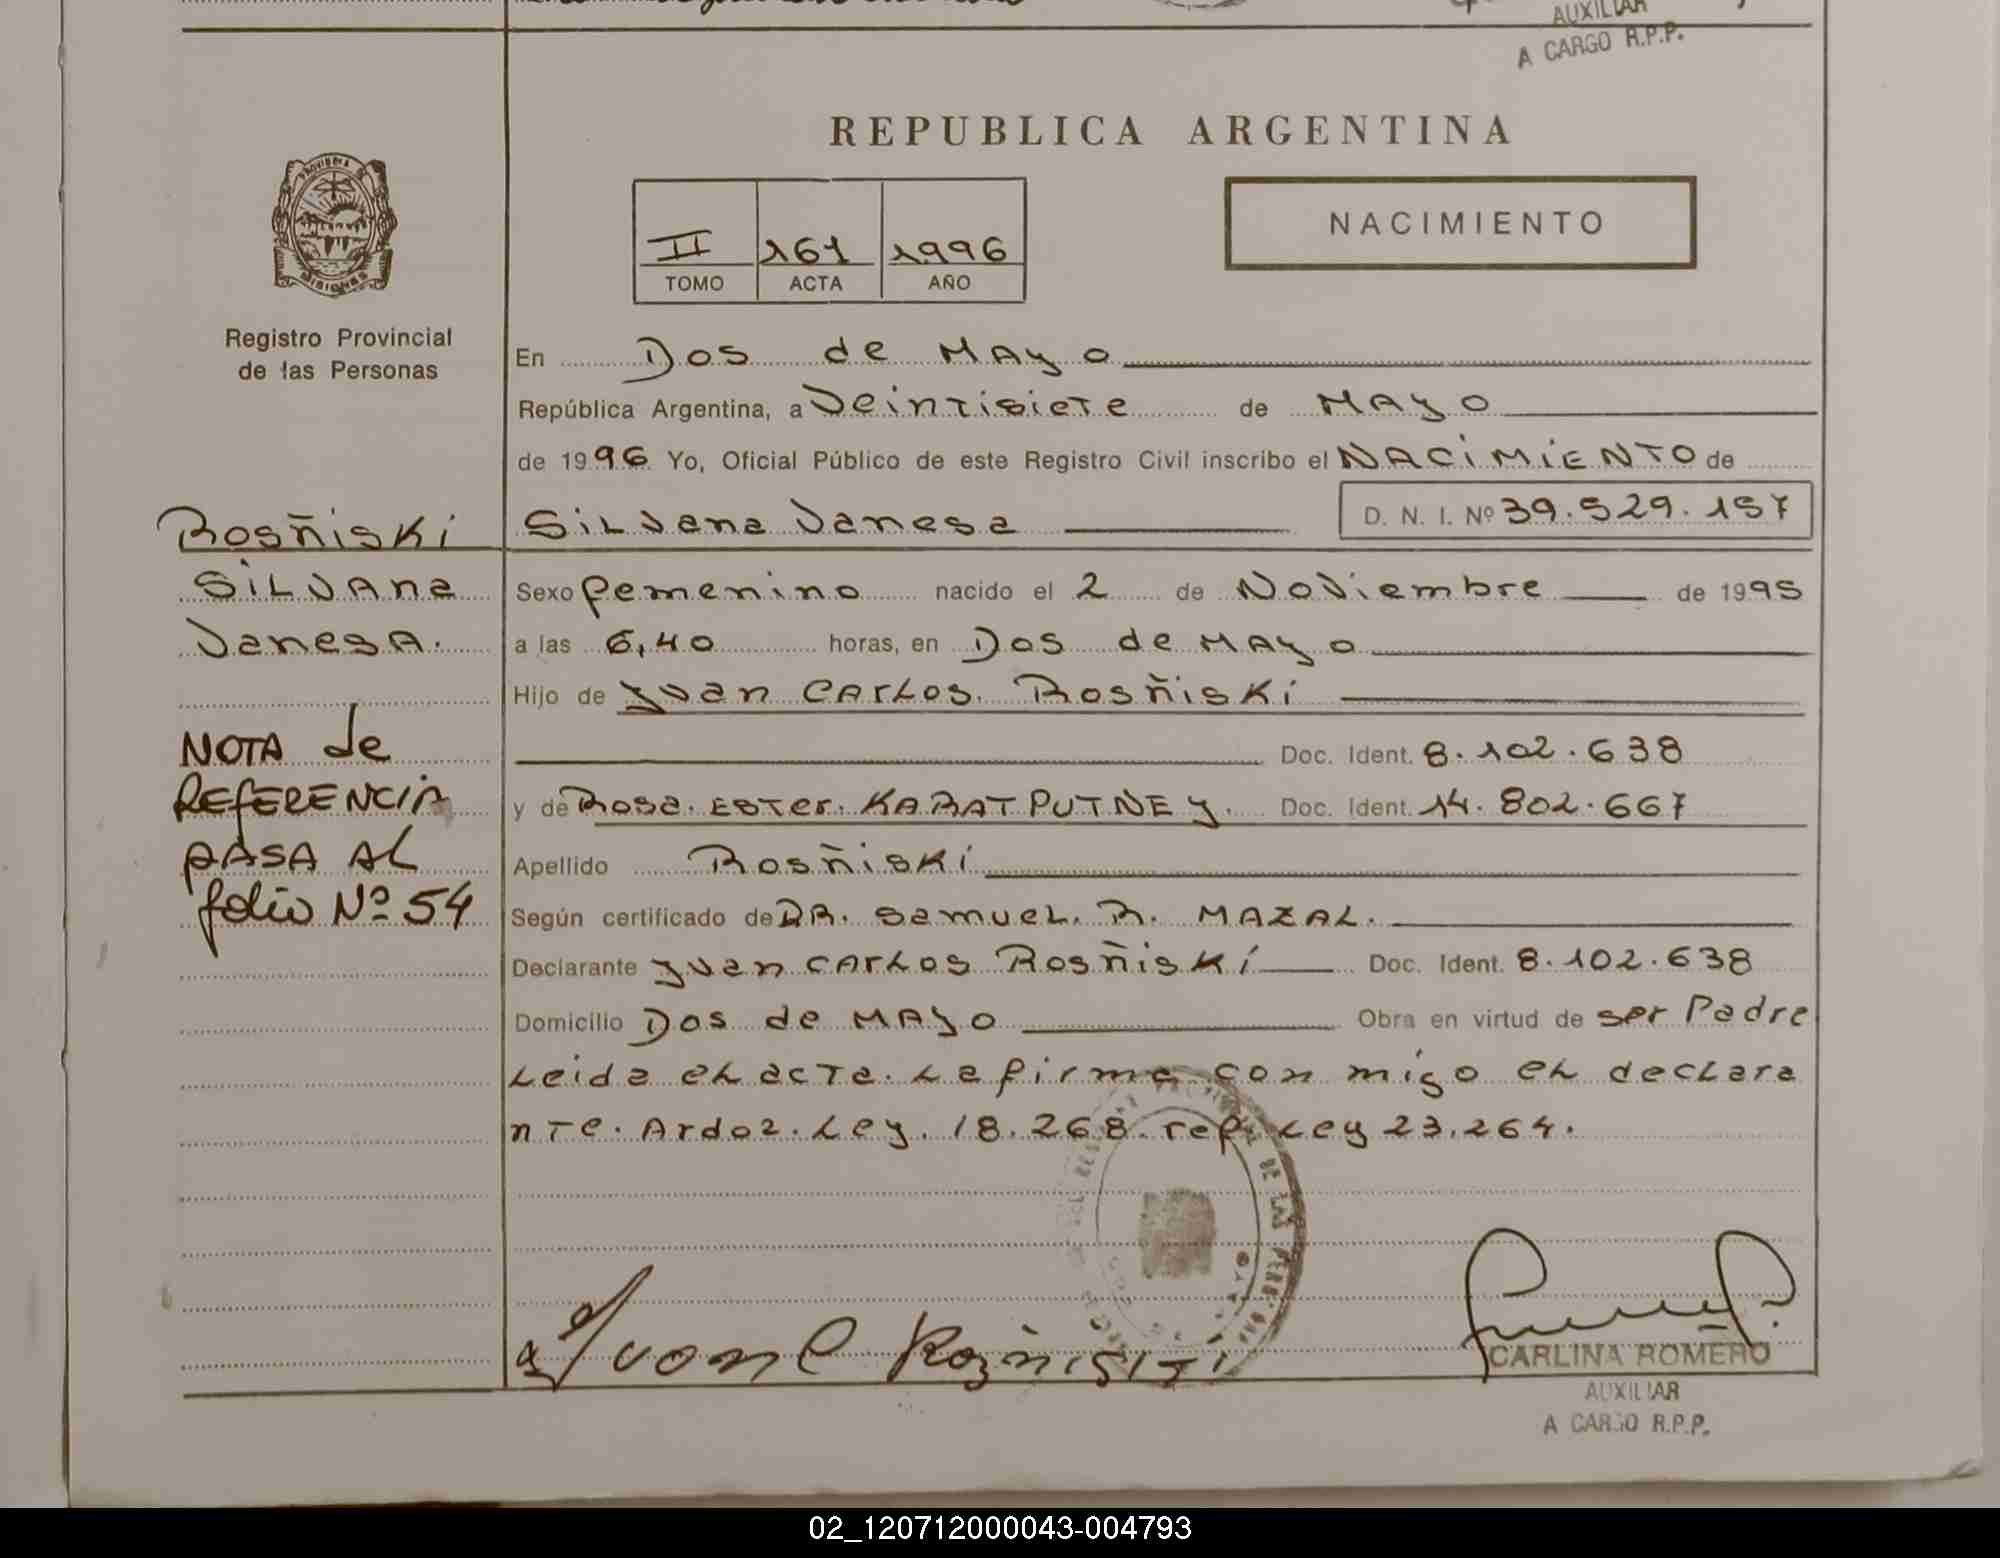 AUXILIAR
A CARGO R.P.P.
REPUBLICA ARGENTINA
NACIMIENTO
II 161 1996
TOMO ACTA AÑO
Registro Provincial
de las Personas
En Dos de Mayo
República Argentina, a Veintisiete de Mayo
de 1996 Yo, Oficial Público de este Registro Civil inscribo el NACIMIENTO de
Rosñiski Silvana Vanesa D. N. I. Nº 39.529.157
Silvana
Vanesa.
Sexo femenino nacido el 2 de Noviembre de 1995
a las 6,40 horas, en Dos de Mayo
Hijo de Juan Carlos. Rosñiski
Doc. Ident. 8.102.638
y de Rosa. Ester. KARATPUTNEY. Doc. Ident. 14.802.667
Apellido Rosñiski
Según certificado de DR. Samuel. R. MAZAL.
Declarante Juan Carlos Rosñiski Doc. Ident. 8.102.638
Domicilio Dos de Mayo Obra en virtud de ser Padre
Leida el acta. La firma con migo el declara
nte. Ardo2. Ley. 18.268. ref. Ley 23.264.
NOTA de
REFERENCIA
PASA AL
folio Nº 54
CARLINA ROMERO
AUXILIAR
A CARGO R.P.P.
02_120712000043-004793